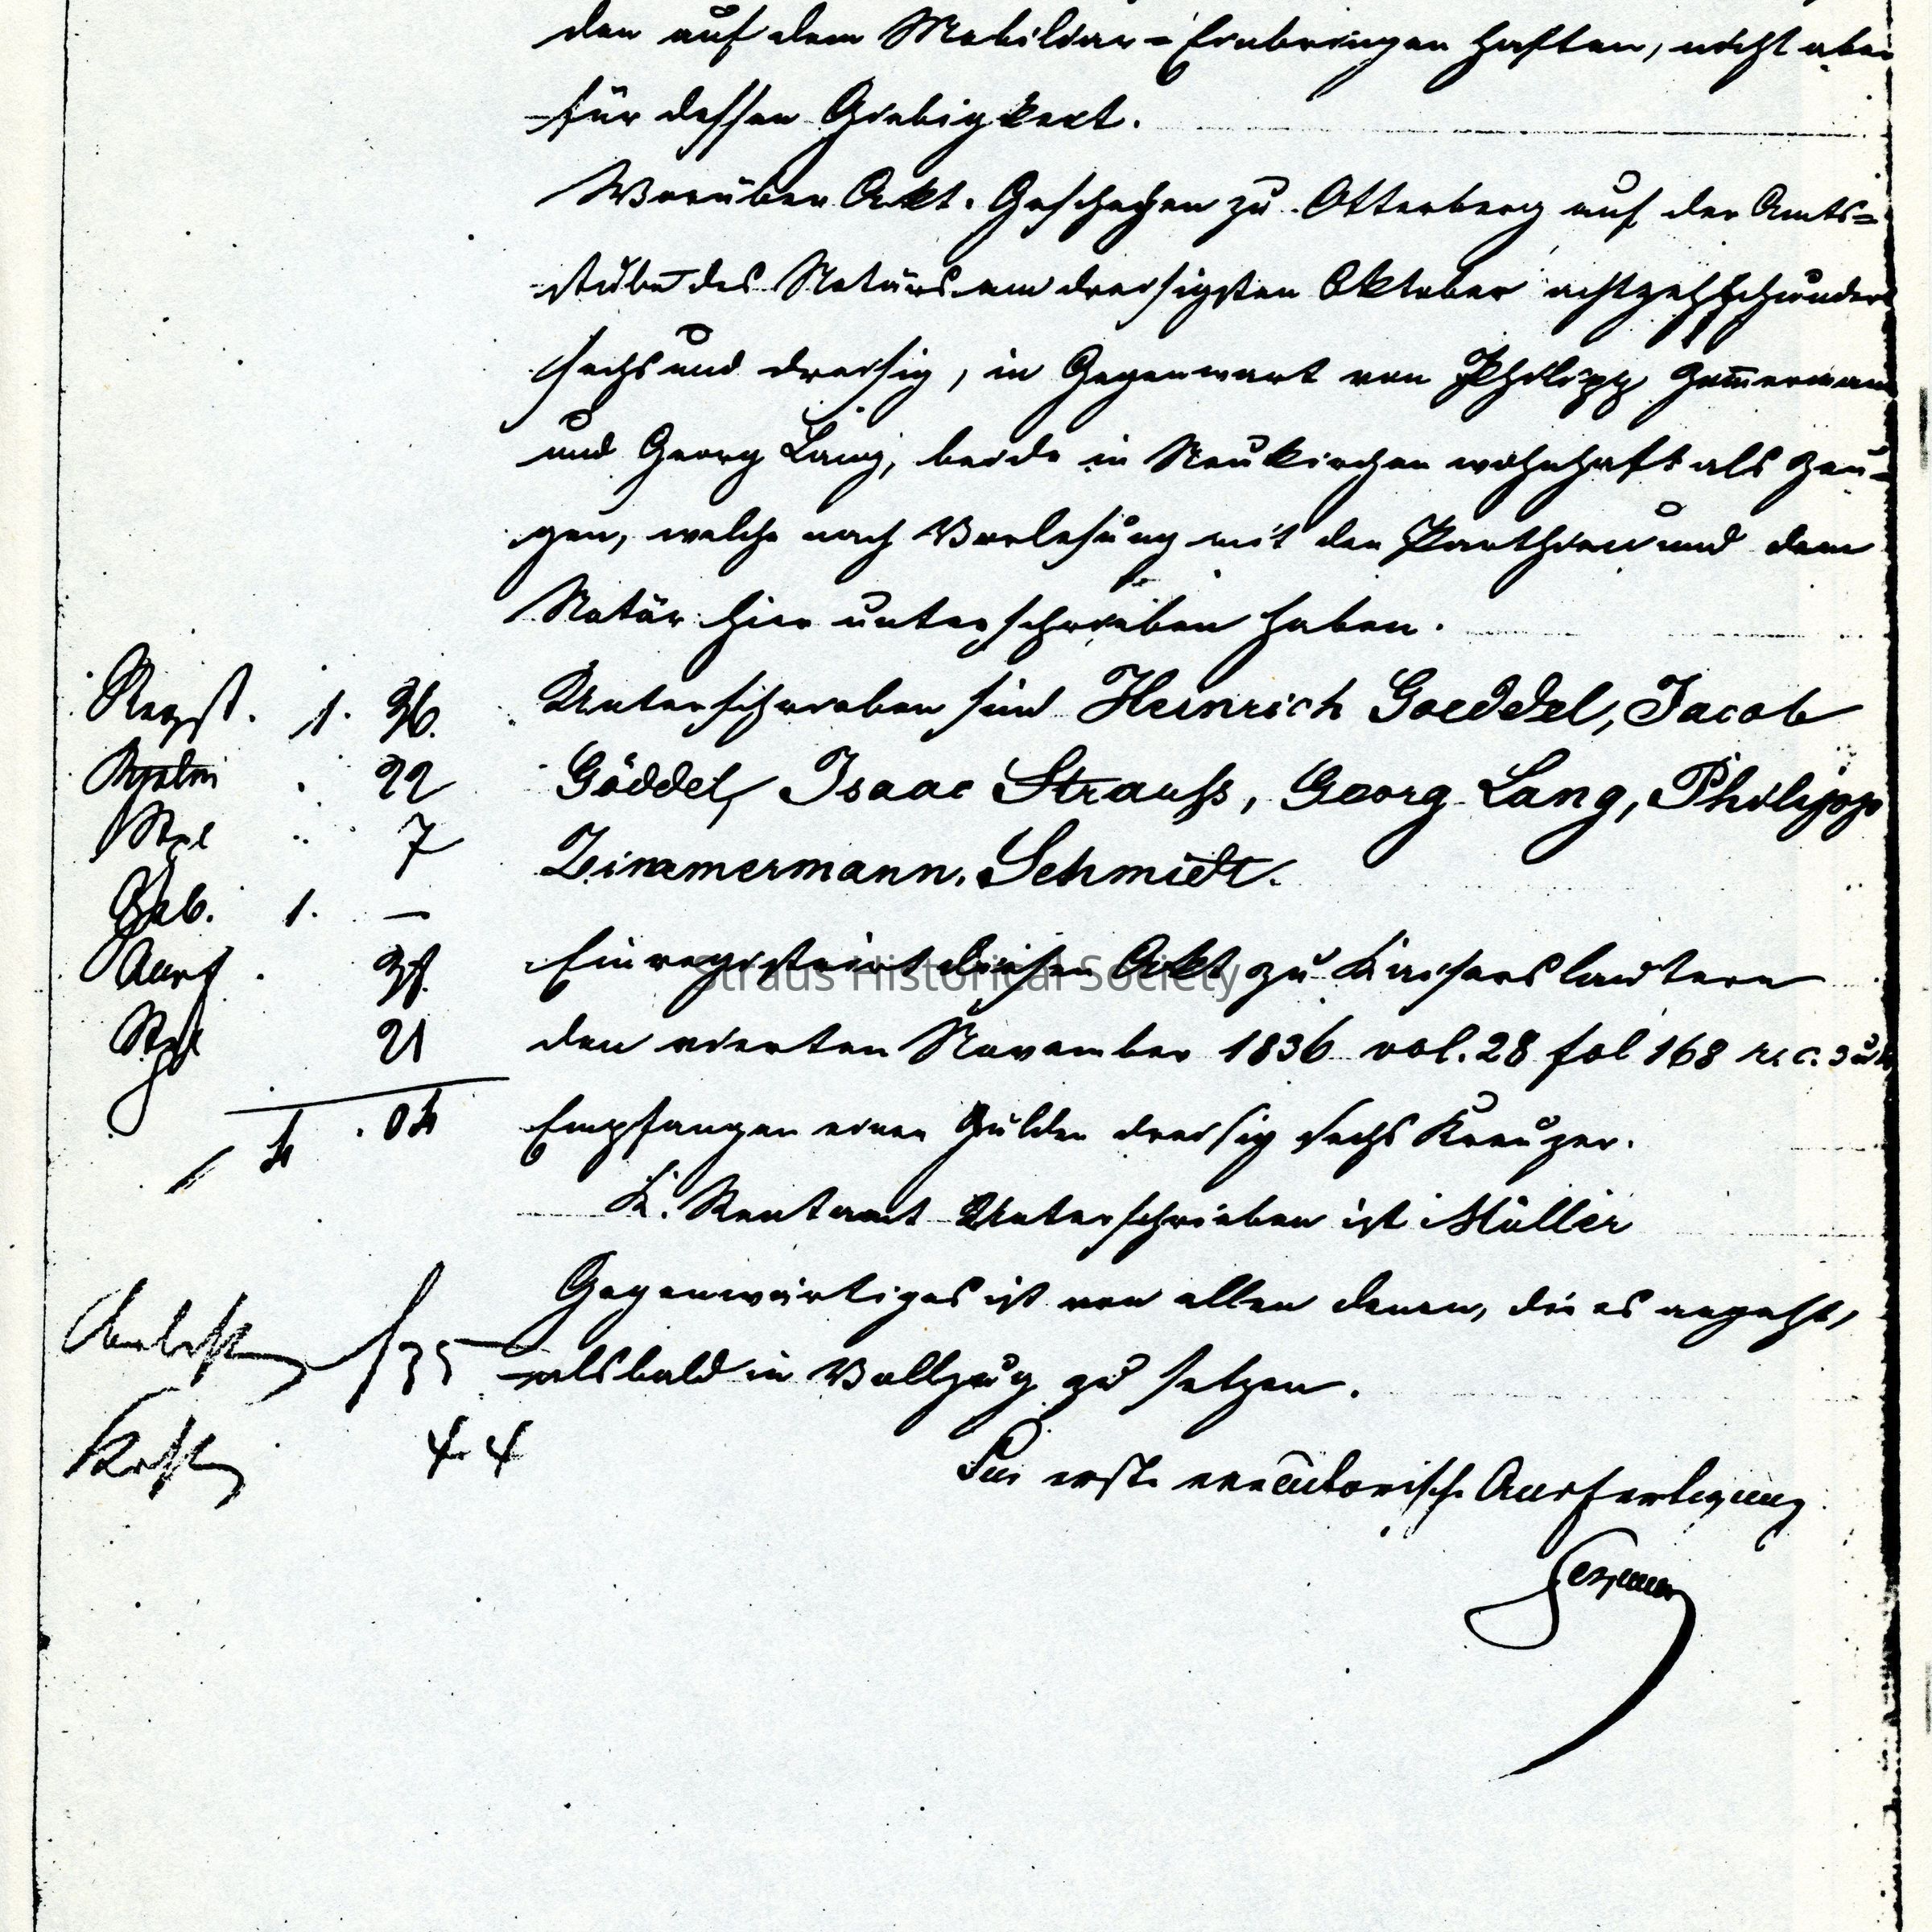 den auf dem Mobiliar-Einbringen haften, nicht aber
für dessen Giebigkeit.
Worüber Akt. Geschehen zu Otterberg auf der Amts-
stube des Notärs am dreisigsten Oktober achtzehnhundert
sechs und dreisig, in Gegenwart von Philipp Zimmermann
und Georg Lang, beide in Neukirchen wohnhaft als Zeu-
gen, welche nach Vorlesung mit den Parthien und dem
Notär hier unterschrieben haben.
Regst. 1. 36.
Unterschrieben sind Heinrich Goeddel, Jacob
22
Göddel, Isaac Strauss, Georg Lang, Philipp
Stpl 7
Zimmermann. Schmidt.
Geb. 1. —
Ausf.
Einregistriert diesen Akt zu Kaiserslautern
Stpl 21
den vierten November 1836 vol. 28 fol 168
4. 04
Empfangen einen Gulden dreisig sechs Kreuzer.
K. Rentamt Unterschrieben ist Müller
Gegenwärtiges ist von allen denen, die es angeht,
35
alsbald in Vollzug zu setzen.
Kosten 4 4
Für erste executorische Ausfertigung
Straus Historical Society